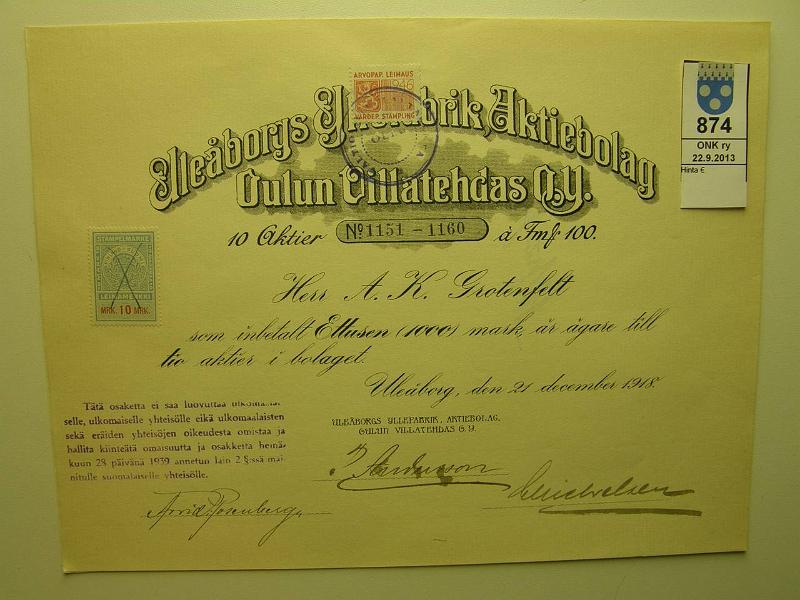 ARVOPAP. LEIMAUS
1946
VÄRDEP. STÄMPLING
Uleåborgs Yllefabrik, Aktiebolag
Oulun Villatehdas O.Y.
10 Aktier No 1151 - 1160 à Fmk 100.
Herr A. K. Grotenfelt
som inbetalt Ettusen (1000) mark, är ägare till
tio aktier i bolaget.
Uleåborg, den 21 december 1918.
ULEÅBORGS YLLEFABRIK, AKTIEBOLAG.
OULUN VILLATEHDAS O.Y.
STAMPELMARKE
LEIMAMERKKI
MRK. 10 MRK.
Tätä osaketta ei saa luovuttaa ulkomaalaiselle,
selle, ulkomaiselle yhteisölle eikä ulkomaalaisten
sekä eräiden yhteisöjen oikeudesta omistaa ja
hallita kiinteätä omaisuutta ja osakketta heinä-
kuun 28 päivänä 1939 annetun lain 2 §:ssä mai-
nitulle suomalaiselle yhteisölle.
Arvid Rosenberg
874
ONK ry
22.9.2013
Hinta €